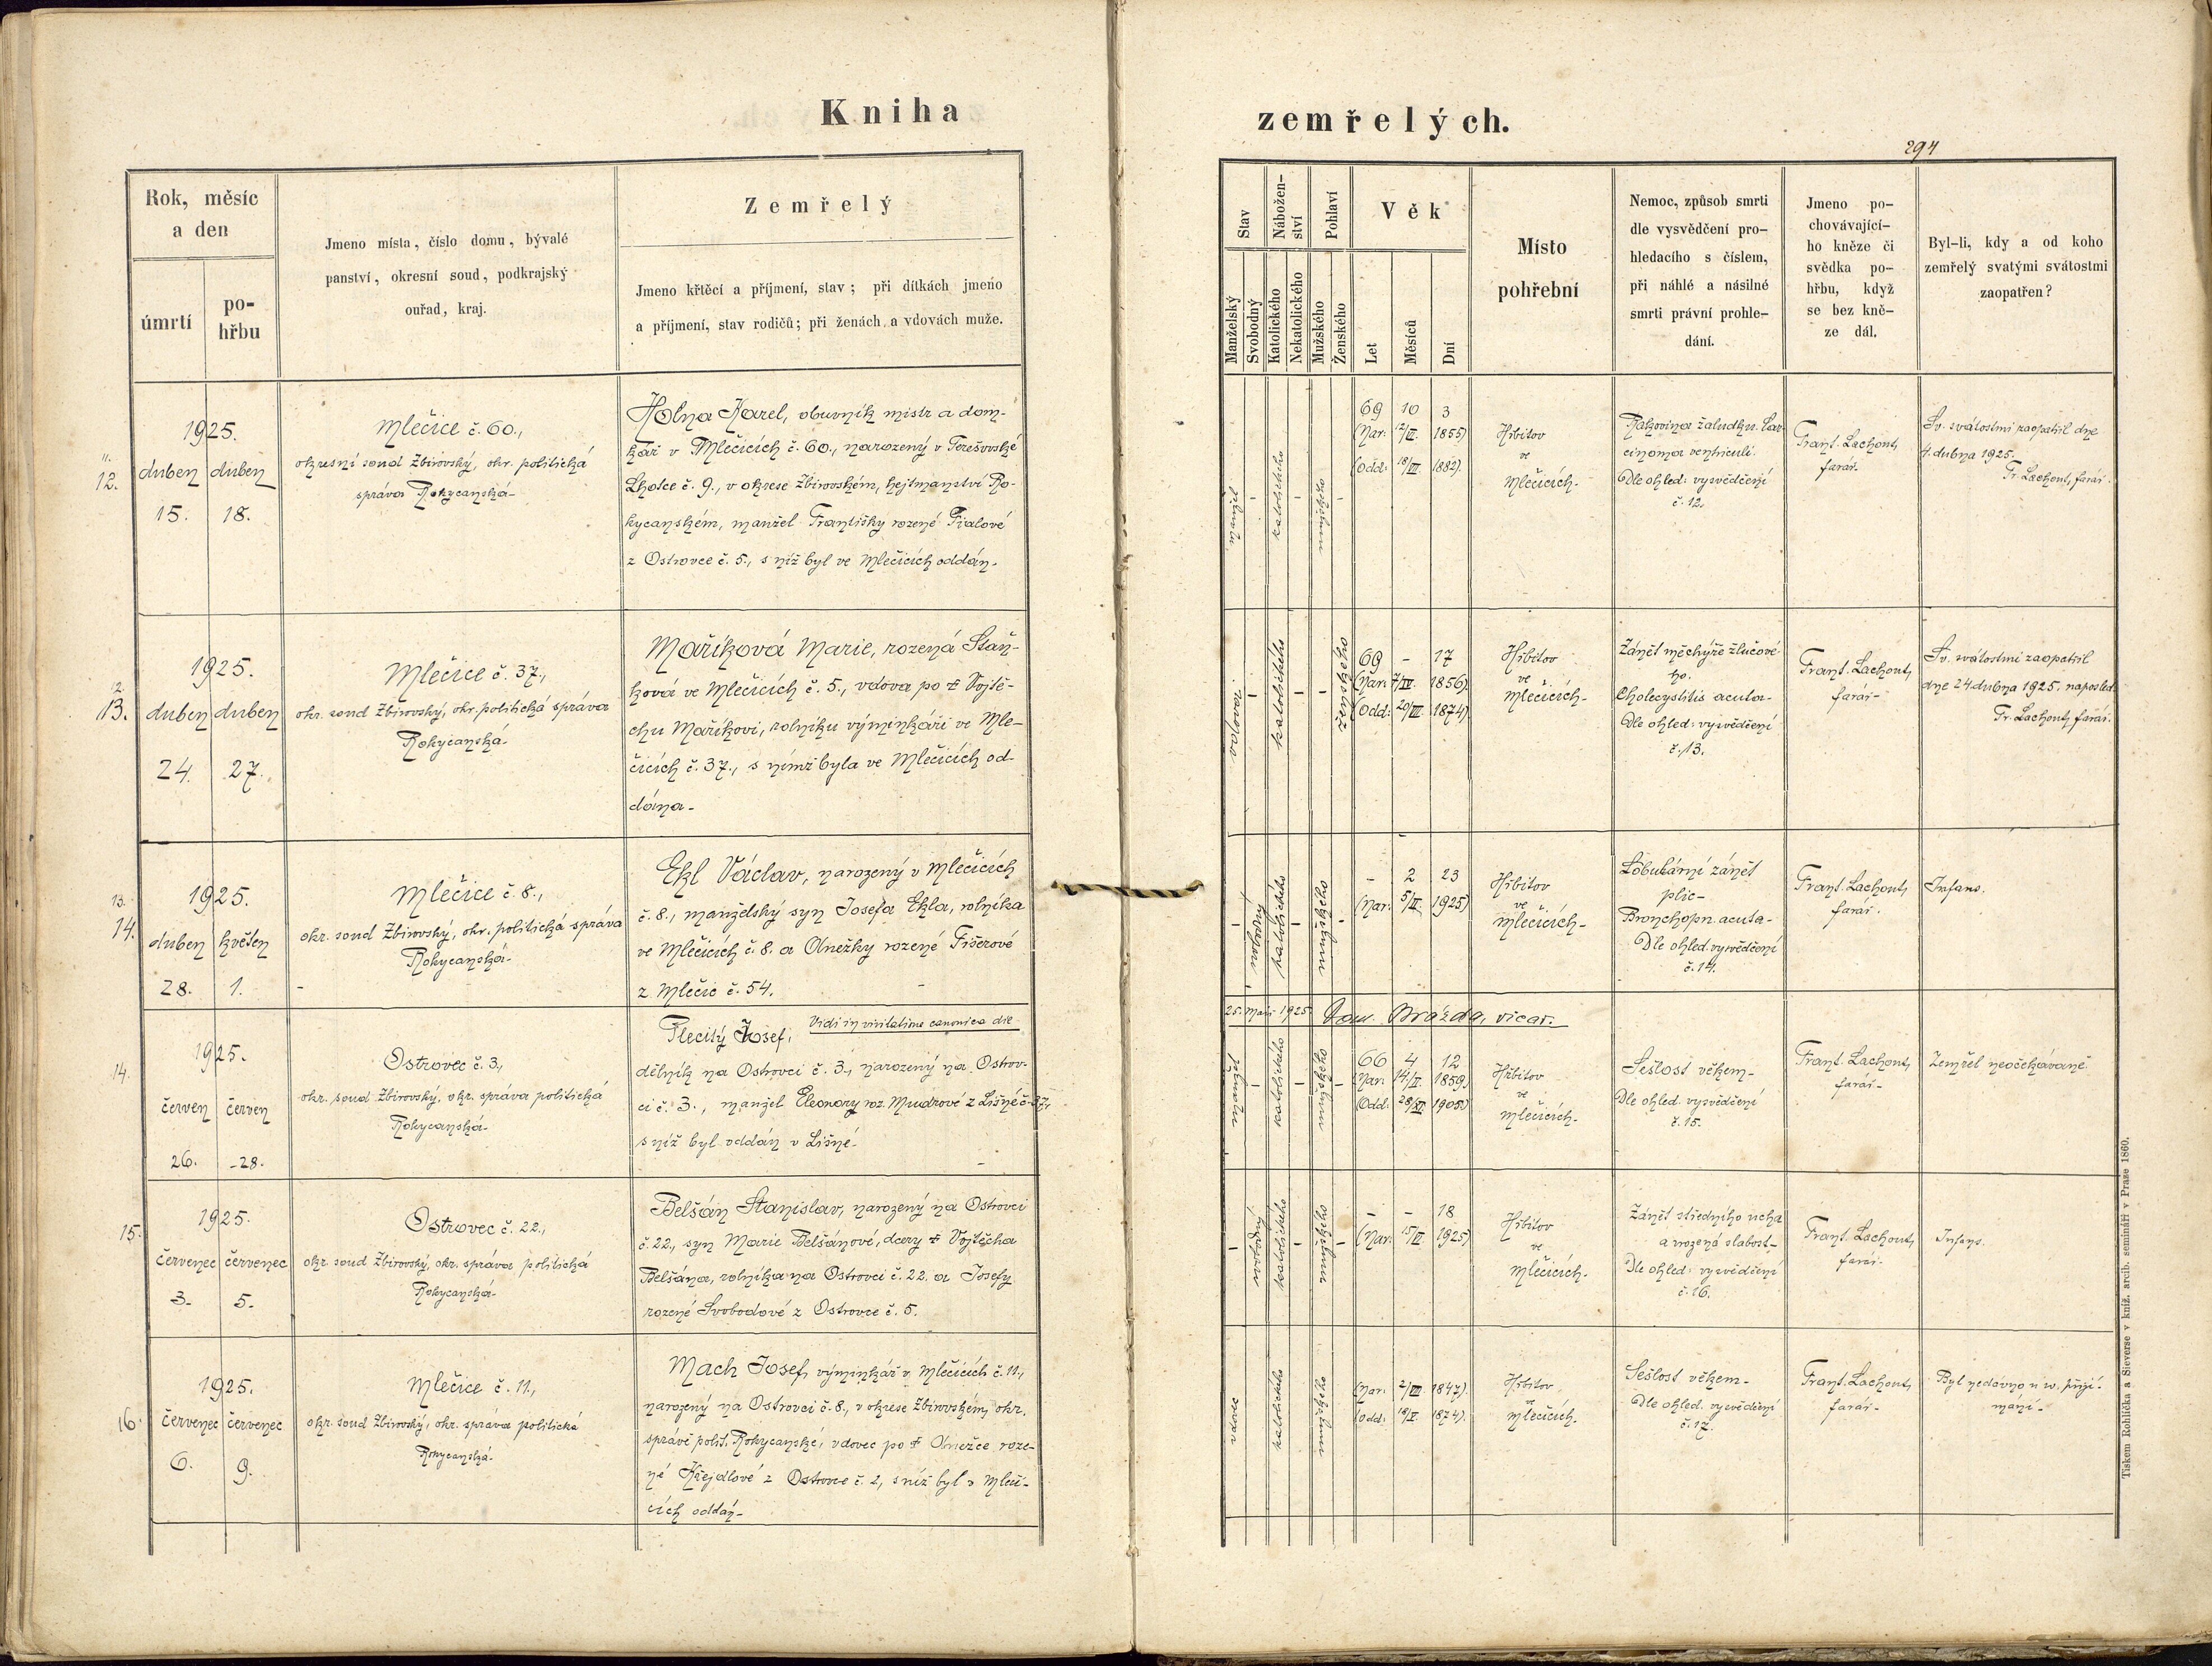 Kniha
Rok, měsíc
a den
úmrtí
po-
hřbu
Jmeno místa, číslo domu, bývalé
panství, okresní soud, podkrajský
ouřad, kraj.
Zemřelý
Jmeno křtěcí a příjmení, stav; při dítkách jmeno
a příjmení, stav rodičů; při ženách a vdovách muže.
11.
12.
1925.
duben duben
15. 18.
Mlečice č. 60.,
okresní soud Zbirovský, okr. politická
správa Rokycanská-
Holna Karel, obuvník mistr a dom-
kář v Mlečicích č. 60., narozený v Terešovské
Lhotce č. 9., v okrese Zbirovském, hejtmanství Ro-
kycanském, manžel Františky rozené Fialové
z Ostrovce č. 5., s níž byl ve Mlečicích oddán-
12.
13.
1925.
duben duben
24. 27.
Mlečice č. 37.,
okr. soud Zbirovský, okr. politická správa
Rokycanská-
Maříková Marie, rozená Staň-
ková ve Mlečicích č. 5., vdova po † Vojtě-
chu Maříkovi, rolníku výminkáři ve Mle-
čicích č. 37., s nímž byla ve Mlečicích od-
dána-
13.
14.
1925.
duben květen
28. 1.
Mlečice č. 8.,
okr. soud Zbirovský, okr. politická správa
Rokycanská-
Ekl Václav, narozený v Mlečicích
č. 8., manželský syn Josefa Ekla, rolníka
ve Mlečicích č. 8. a Anežky rozené Fišerové
z Mlečic č. 54.
Vidi in visitatione canonica die
14.
1925.
červen červen
26. -28.
Ostrovec č. 3.,
okr. soud Zbirovský, okr. správa politická
Rokycanská-
Plecitý Josef,
dělník na Ostrovci č. 3., narozený na Ostrov-
ci č. 3., manžel Eleonory roz. Mudrové z Lišné č. 37.,
s níž byl oddán v Lišné-
15.
1925.
červenec červenec
3. 5.
Ostrovec č. 22.,
okr. soud Zbirovský, okr. správa politická
Rokycanská-
Belšán Stanislav, narozený na Ostrovci
č. 22., syn Marie Belšánové, dcery † Vojtěcha
Belšána, rolníka na Ostrovci č. 22. a Josefy
rozené Svobodové z Ostrovce č. 5.
16.
1925.
červenec červenec
6. 9.
Mlečice č. 11.,
okr. soud Zbirovský, okr. správa politická
Rokycanská-
Mach Josef, výminkář v Mlečicích č. 11.,
narozený na Ostrovci č. 8., v okrese Zbirovském, okr.
správě polit. Rokycanské, vdovec po † Anežce roze-
né Křejdlové z Ostrovce č. 2, s níž byl v Mleči-
cích oddán-
zemřelých.
294
Stav
Nábožen-
ství
Pohlaví
Věk
Manželský
Svobodný
Katolického
Nekatolického
Mužského
Ženského
Let
Měsíců
Dní
Místo
pohřební
Nemoc, způsob smrti
dle vysvědčení pro-
hledacího s číslem,
při náhlé a násilné
smrti právní prohle-
dání.
Jmeno po-
chovávající-
ho kněze či
svědka po-
hřbu, když
se bez kně-
ze dál.
Byl-li, kdy a od koho
zemřelý svatými svátostmi
zaopatřen?
katolického
mužského
69 10 3
(Nar. 12/VI. 1855)
(Odd: 18/VII. 1882).
Hřbitov
ve
Mlečicích.
Rakovina žaludku. Car-
cinoma ventriculi.
Dle ohled: vysvědčení
č. 12.
Frant. Lachout,
farář.
Sv. svátostmi zaopatřil dne
4. dubna 1925.
Fr. Lachout, farář.
katolického
ženského
69 - 17
(Nar. 7/IV. 1856).
(Odd: 20/VII. 1874)
Hřbitov
ve
Mlečicích-
Zánět měchýře žlučové
ho.
Cholecystitis acuta-
Dle ohled: vysvědčení
č. 13.
Frant. Lachout,
farář-
Sv. svátostmi zaopatřil
dne 24. dubna 1925. naposled
Fr. Lachout, farář.
svobodný
katolického
mužského
- 2 23
(Nar. 5/II. 1925)
Hřbitov
ve
Mlečicích-
Lobulární zánět
plic-
Bronchopn. acuta-
Dle ohled. vysvědčení
č. 14.
Frant. Lachout,
farář.
Infans.
25. máji 1925. Brázda, vicar.
manželský
katolického
mužského
66 4 12
(Nar. 14/II. 1859)
(Odd: 28/XI. 1905.)
Hřbitov
ve
Mlečicích-
Sešlost věkem-
Dle ohled. vysvědčení
č. 15.
Frant. Lachout,
farář-
Zemřel neočekávaně
svobodný
katolického
mužského
- - 18
(Nar. 15/VI. 1925)
Hřbitov
ve
Mlečicích.
Zánět středního ucha
a vrozená slabost-
Dle ohled: vysvědčení
č. 16.
Frant. Lachout,
farář-
Infans.
vdovec
katolického
mužského
(Nar. 2/VIII. 1847).
(Odd: 1874).
Hřbitov
ve
Mlečicích.
Sešlost věkem-
Dle ohled. vysvědčení
č. 17.
Frant. Lachout,
farář-
Byl nedávno u sv. přijí-
mání-
Tiskem Rohlíčka a Sieverse v kníž. arcib. semináři v Praze 1860.